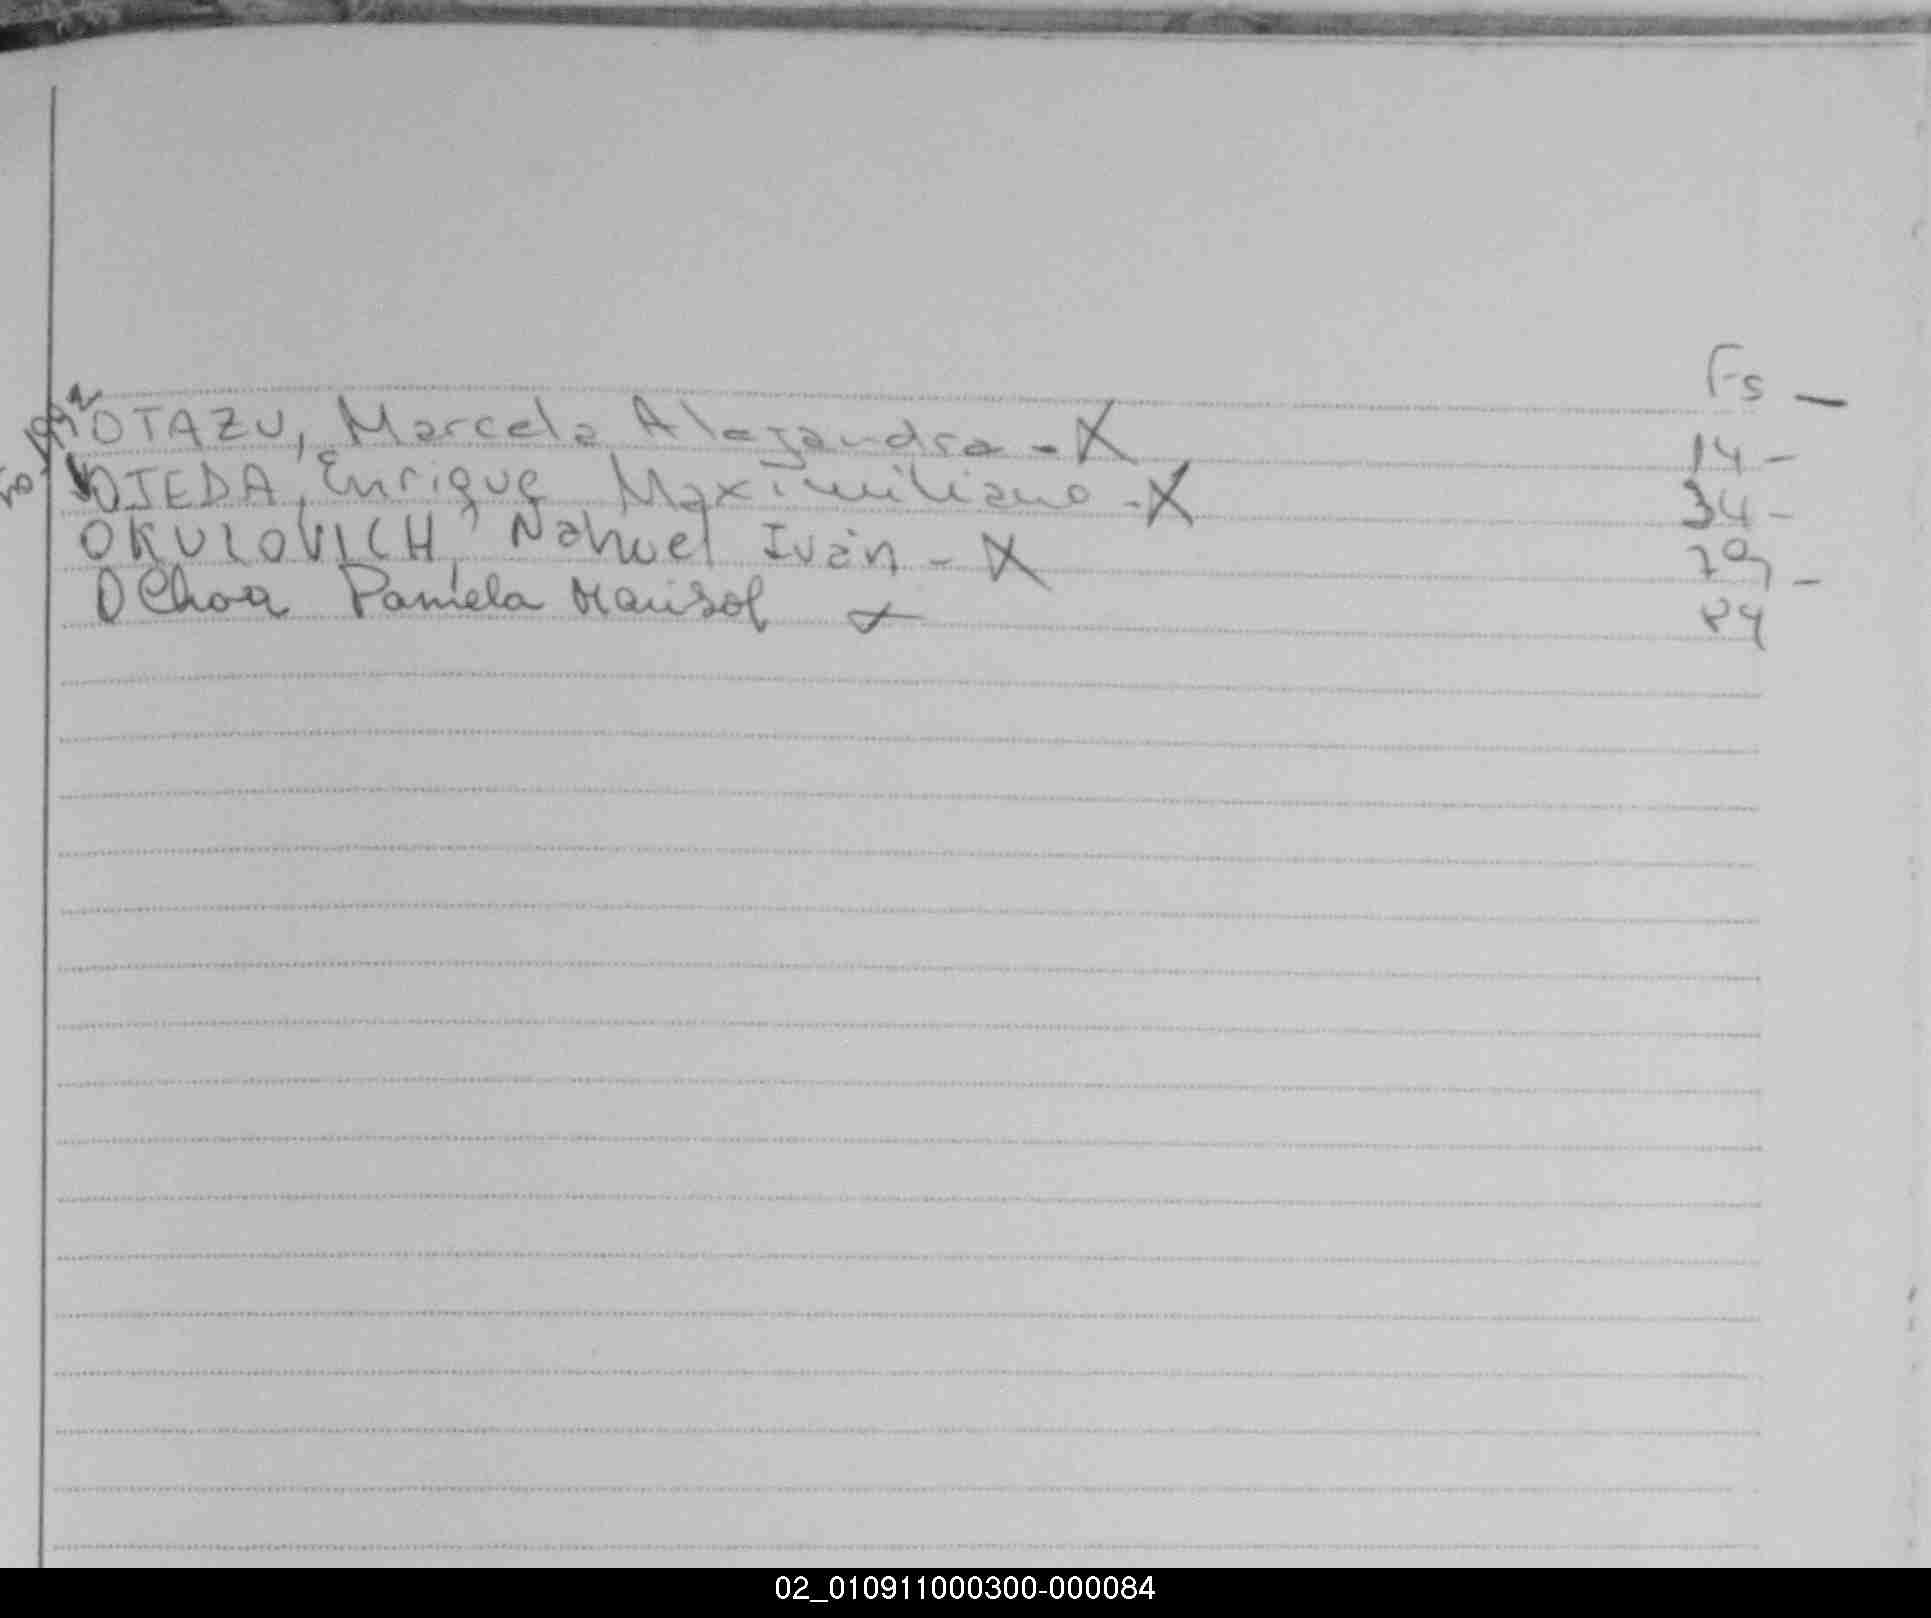 Fs -
1992 OTAZU, Marcela Alejandra - X 14 -
OJEDA, Enrique Maximiliano - X 34 -
OKULOVICH, Nahuel Iván - X 79 -
OChoa Pamela Marisol X 84
02_010911000300-000084